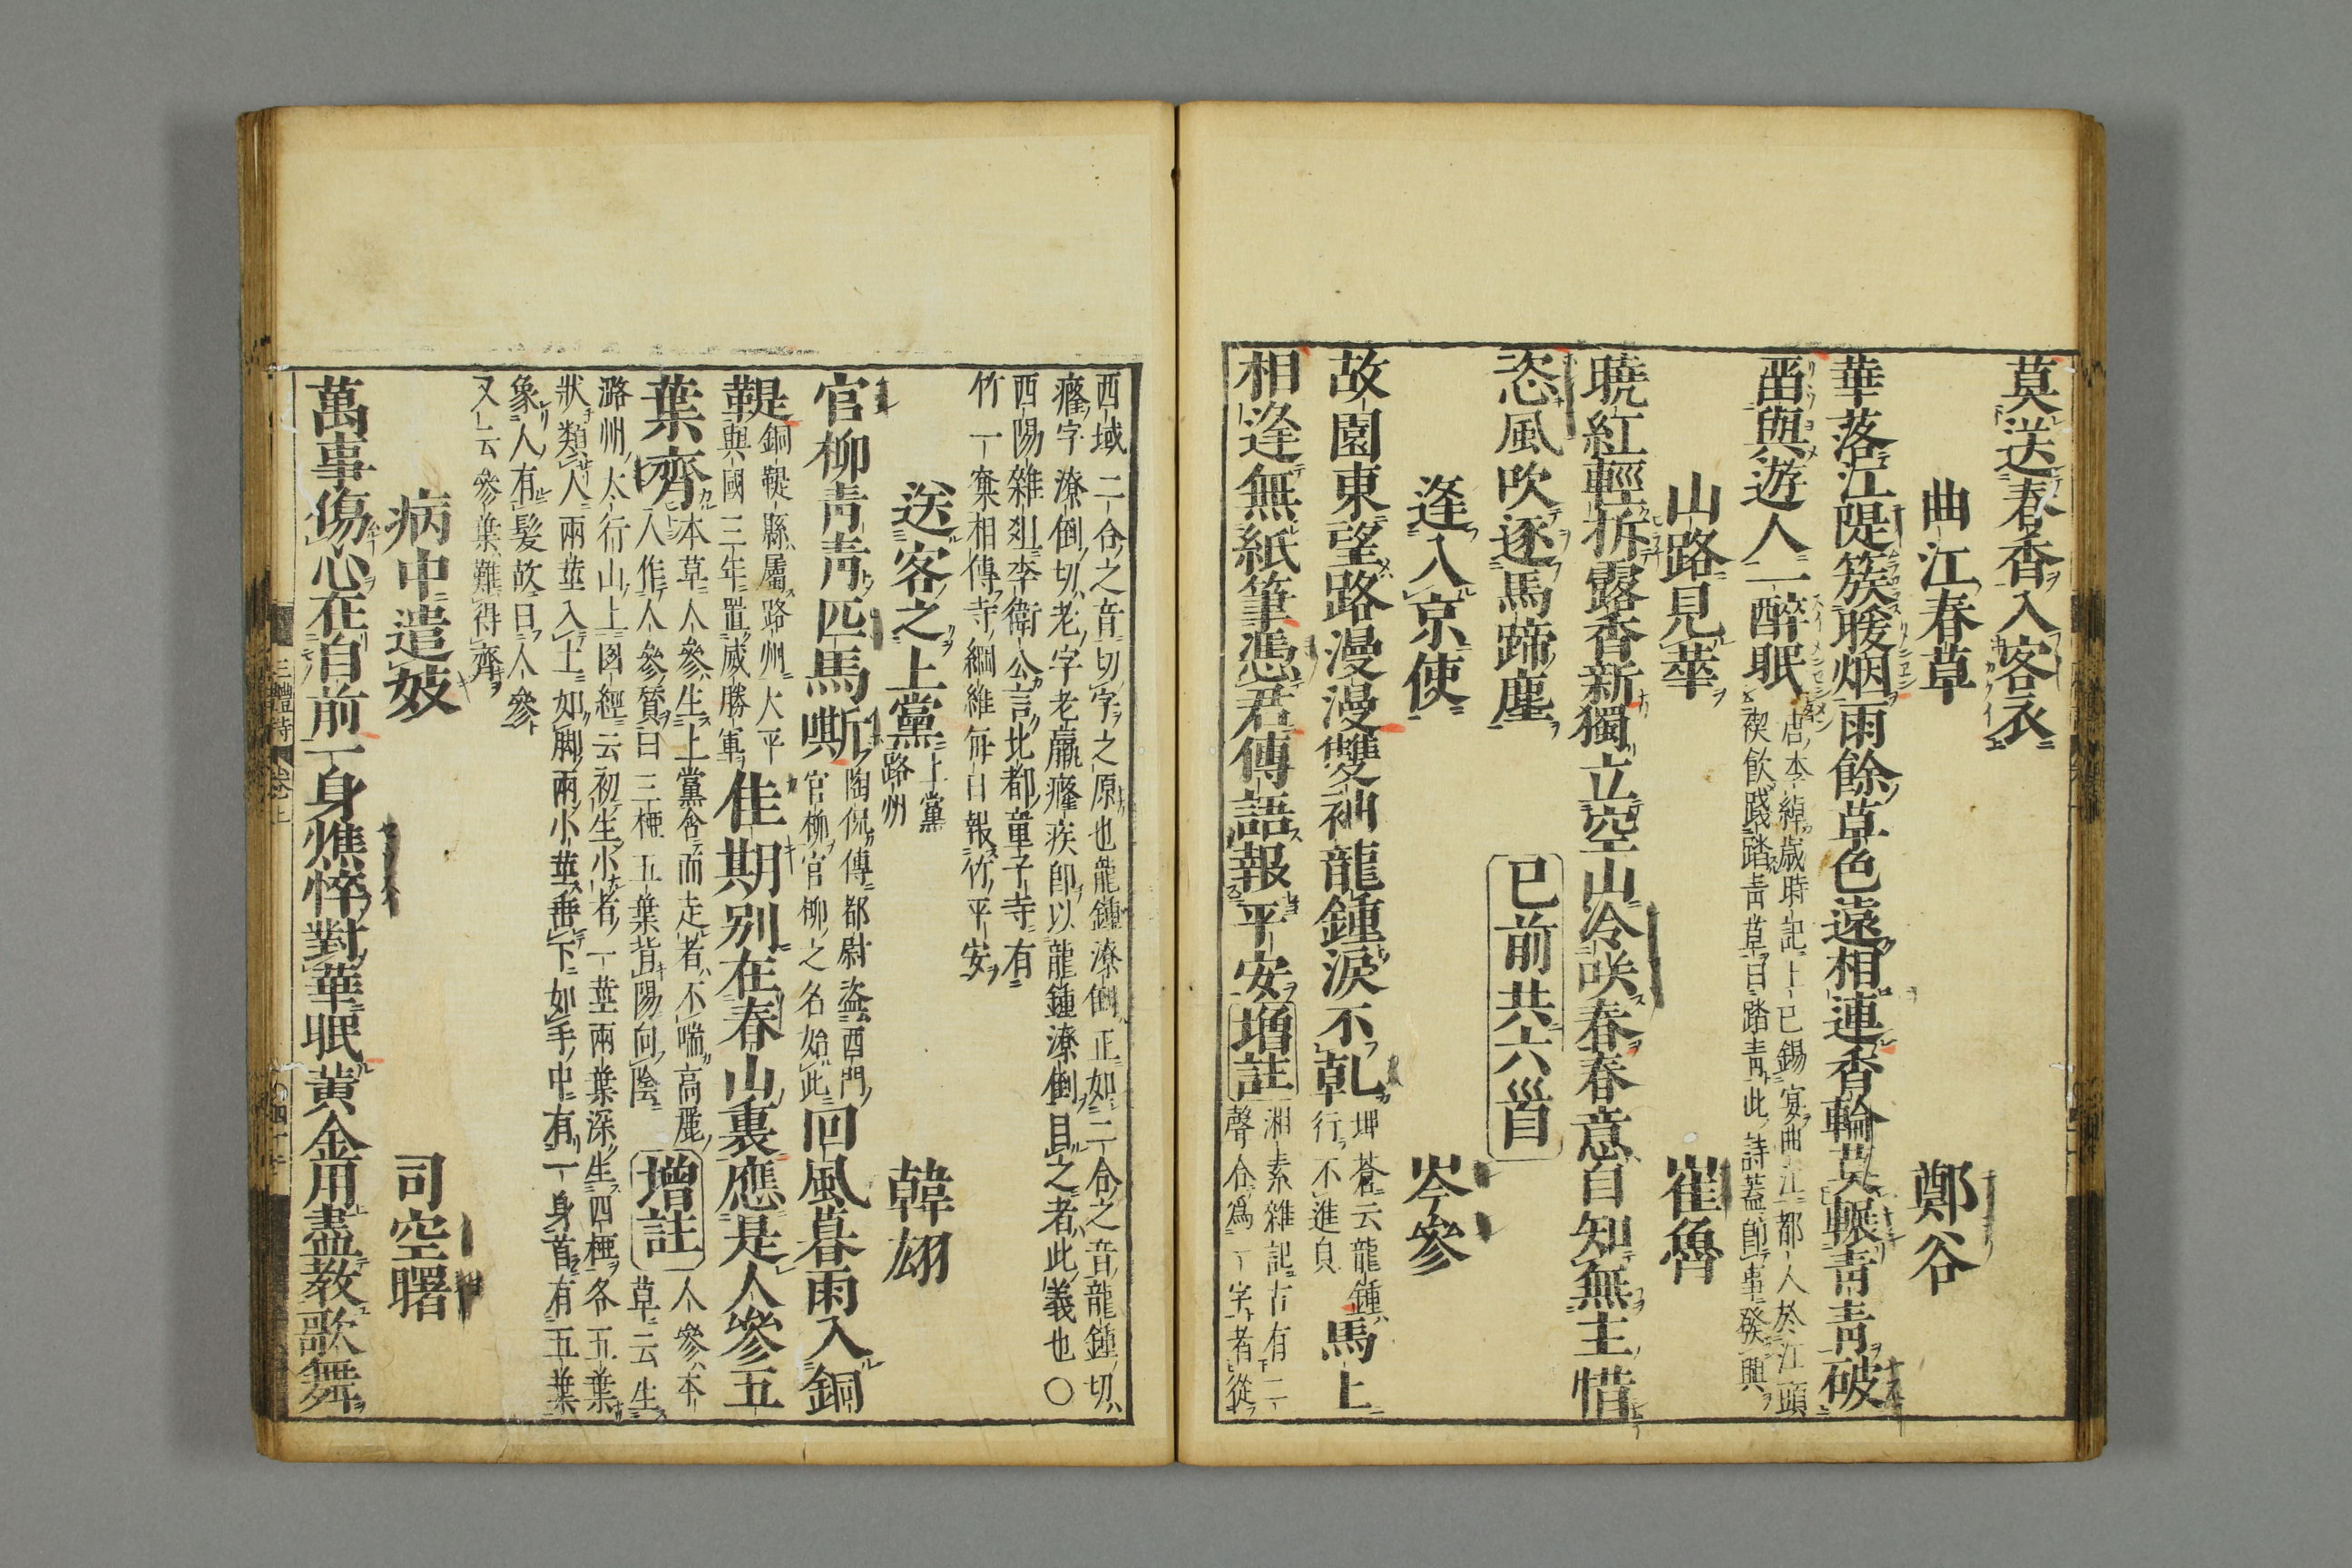 莫送春香入客衣
曲江春草
鄭谷
華落江隄簇暖烟雨餘草色遠相連香輪莫輾青青破
畱與遊人一醉眠
唐本綽歲時記上巳錫宴曲江都人於江頭
禊飲踐踏青草曰踏青此詩蓋卽事發興
山路見華
崔魯
曉紅輕拆露香新獨立空山冷咲春春意自知無主惜
恣風吹逐馬蹄塵
已前共六首
逢入京使
岑參
故園東望路漫漫雙袖龍鍾淚不乾
埤蒼云龍鍾
行不進皃
馬上
相逢無紙筆憑君傳語報平安
增註
湘素雜記古有二
聲合爲一字者從
西域二合之音切字之原也龍鍾潦倒正如二合之音龍鍾切
癃字潦倒切老字老羸癃疾卽以龍鍾潦倒目之者此義也〇
西陽雜俎李衛公言北都童子寺有
竹一窠相傳寺綱維每日報竹平安
送客之上黨
上黨
路州
韓翃
官柳青青匹馬嘶
陶侃傳都尉盜西門
官柳官柳之名始此
回風暮雨入銅
鞮
銅鞮縣屬路州大平
興國三年置威勝軍
佳期別在春山裏應是人參五
葉齊
本草人參生上黨含而走者不喘高麗
人作人參贊曰三椏五葉背陽向陰
增註
人參本
草云生
潞州太行山上图經云初生小者一莖兩葉深生四椏各五葉
狀類人兩莖入土如脚兩小莖垂下如手中有一身首有五葉
象人有髮故曰人參
又云參葉難得齊
病中遣妓
司空曙
萬事傷心在自前一身憔悴對華眠黄金用盡教歌舞
三體詩
卷上
〇四十